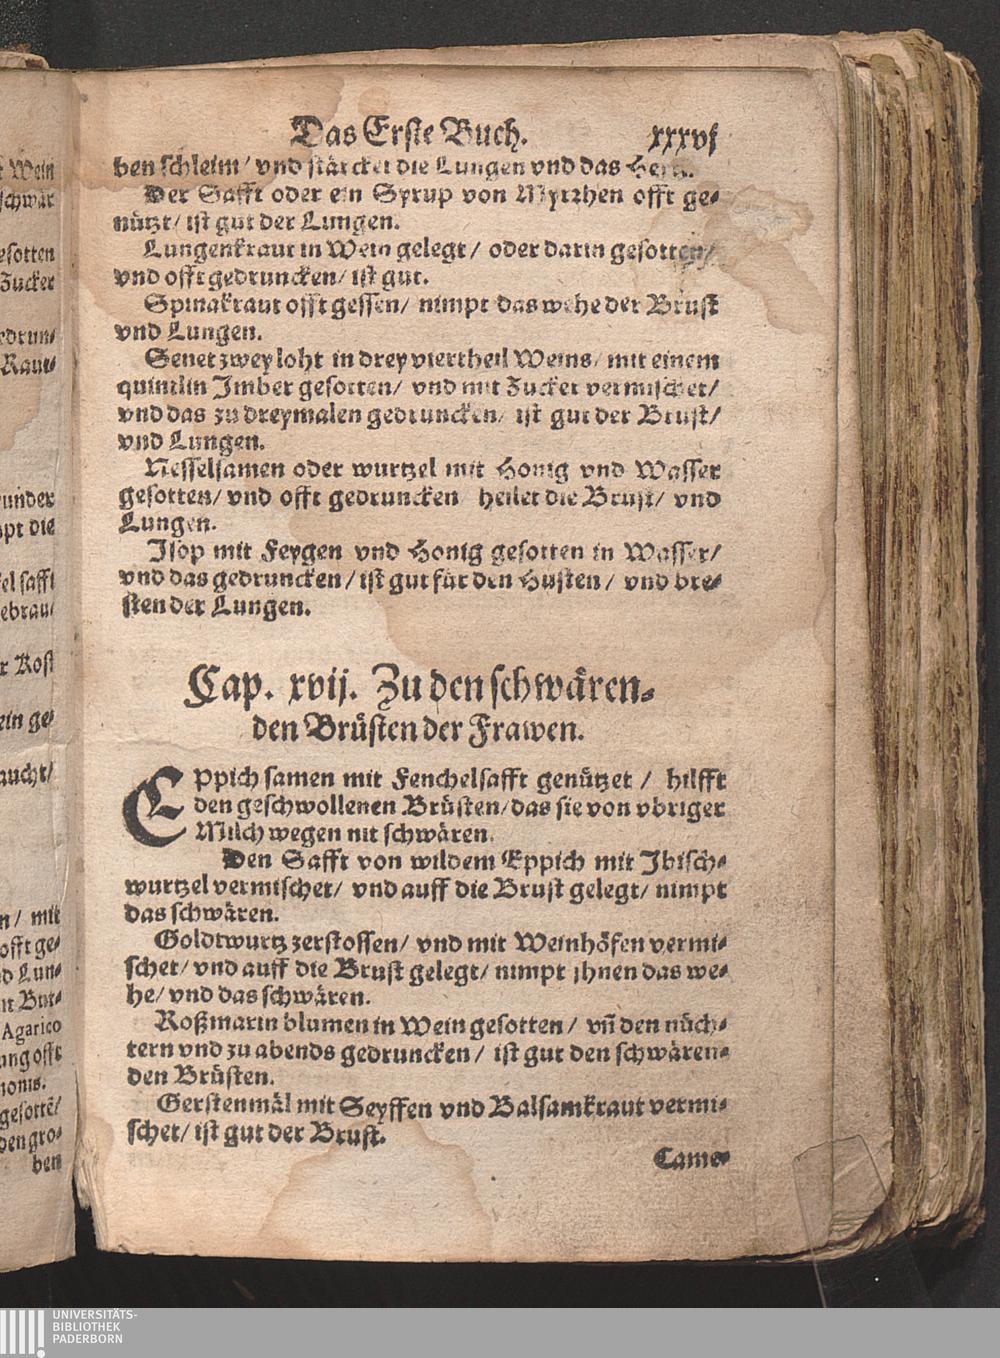 t Wein
schwär
esotten
Zucker
edrun⸗
Raut⸗
under
pt die
el safft
ebrau/
r Kost
ein ge⸗
aucht/
n/ mit
offt ge⸗
d Lun⸗
it But⸗
Agarico
ung offt
gesottē/
den gro⸗
ben
Das Erste Buch. xxxvj
ben schleim/ vnd stärcket die Lungen vnd das Hertz.
Der Safft oder ein Syrup von Myrzhen offt ge⸗
nützt/ ist gut der Lungen.
Lungenkraut in Wein gelegt/ oder darin gesotten/
vnd offt gedruncken/ ist gut.
Spinakraut offt gessen/ nimpt das wehe der Brust
vnd Lungen.
Senet zwey loht in drey viertheil Weins/ mit einem
quintlin Imber gesotten/ vnd mit Zucker vermischet/
vnd das zu dreymalen gedruncken/ ist gut der Brust/
vnd Lungen.
Nesselsamen oder wurtzel mit Honig vnd Wasser
gesotten/ vnd offt gedruncken heilet die Brust/ vnd
Lungen.
Isop mit Feygen vnd Honig gesotten in Wasser/
vnd das gedruncken/ ist gut für den Husten/ vnd bre⸗
sten der Lungen.
Cap. xvij. Zu den schwären⸗
den Brüsten der Frawen.
EPpich samen mit Fenchelsafft genützet/ hilfft
den geschwollenen Brüsten/ das sie von vbriger
Milch wegen nit schwären.
Den Safft von wildem Eppich mit Ibisch⸗
wurtzel vermischet/ vnd auff die Brust gelegt/ nimpt
das schwären.
Goldtwurtz zerstossen/ vnd mit Weinhöfen vermi⸗
schet/ vnd auff die Brust gelegt/ nimpt jhnen das we⸗
he/ vnd das schwären.
Roßmarin blumen in Wein gesotten/ vñ den nüch⸗
tern vnd zu abends gedruncken/ ist gut den schwären⸗
den Brüsten.
Gerstenmäl mit Seyffen vnd Balsamkraut vermi⸗
schet/ ist gut der Brust.
Came⸗
UNIVERSITÄTS-
BIBLIOTHEK
PADERBORN